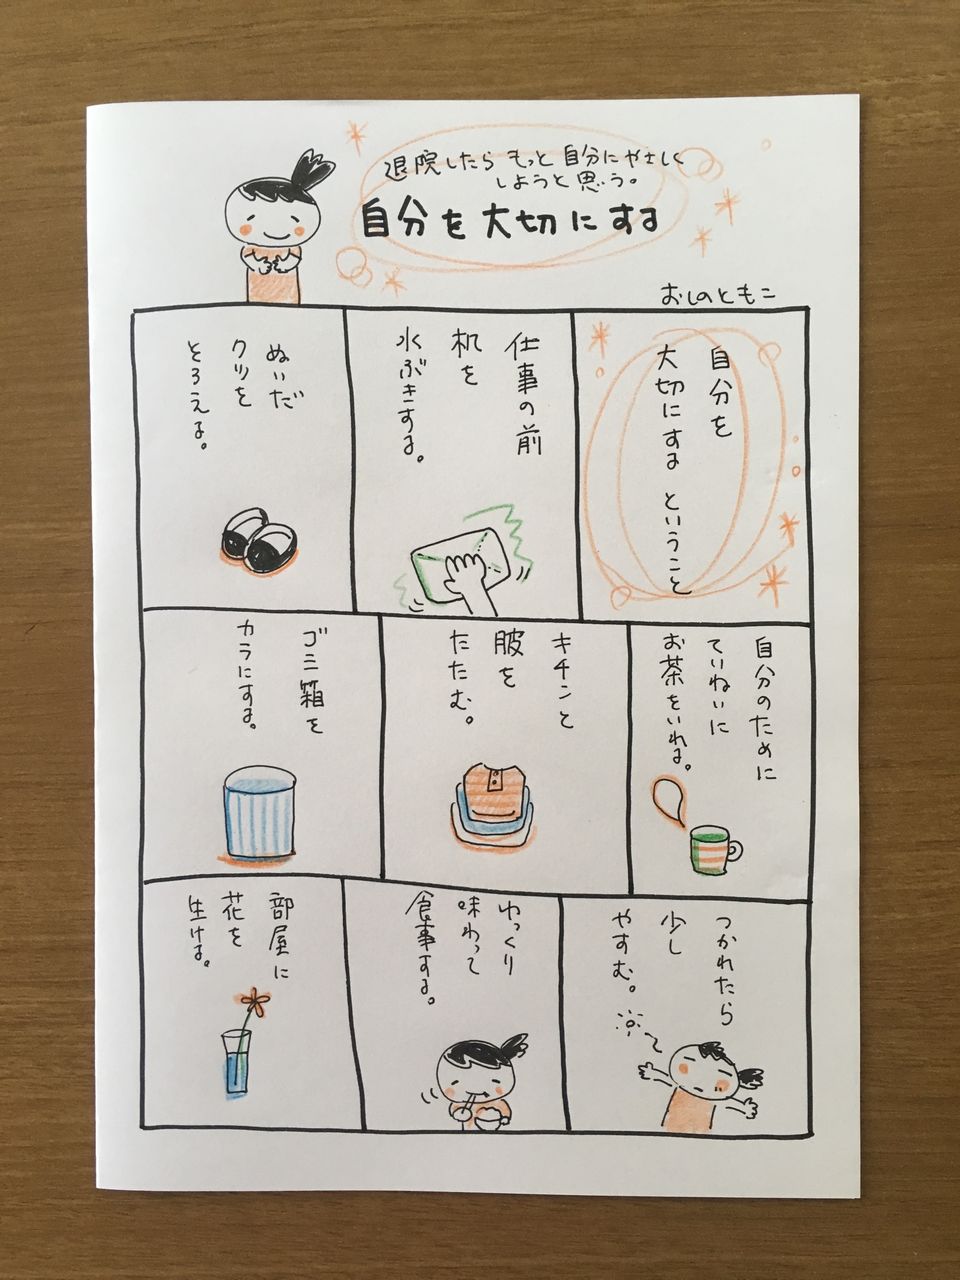 退院したら もっと 自分にやさしく
しようと思う。
自分を大切にする
おしのともこ
自分を
大切にする ということ
仕事の前
机を
水ぶきする。
ぬいだ
クツを
そろえる。
自分のために
ていねいに
お茶をいれる。
キチンと
服を
たたむ。
ゴミ箱を
カラにする。
つかれたら
少し
やすむ。
ゆっくり
味わって
食事する。
部屋に
花を
生ける。